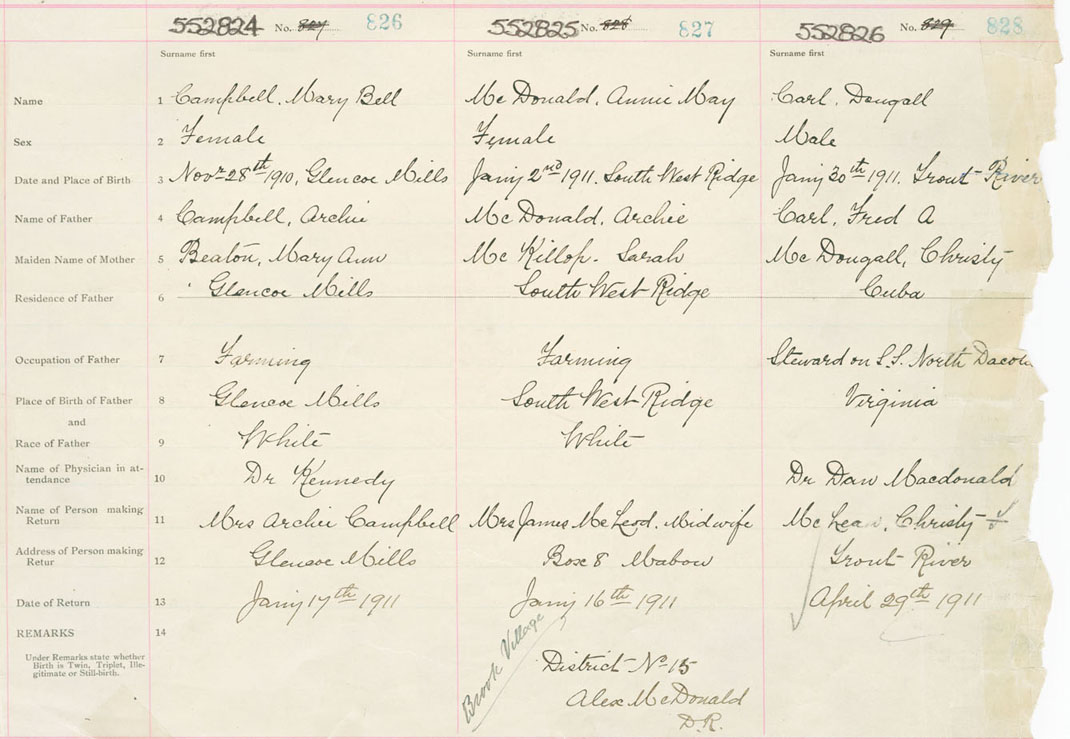 552824 No. 827 826 552825 No. 828 827 552826 No. 829 828
Surname first Surname first Surname first
Name 1 Campbell, Mary Bell McDonald, Annie May Carl, Dougall
Sex 2 Female Female Male
Date and Place of Birth 3 Novr 28th 1910, Glencoe Mills Jany 2nd 1911. South West Ridge Jany 30th 1911. Trout River
Name of Father 4 Campbell, Archie McDonald, Archie Carl, Fred A
Maiden Name of Mother 5 Beaton, Mary Ann McKillop. Sarah McDougall, Christy
Residence of Father 6 Glencoe Mills South West Ridge Cuba
Occupation of Father 7 Farming Farming Steward on S.S. North Dacota
Place of Birth of Father 8 Glencoe Mills South West Ridge Virginia
and
Race of Father 9 White White
Name of Physician in at-
tendance 10 Dr Kennedy Dr Dan Macdonald
Name of Person making
Return 11 Mrs Archie Campbell Mrs James McLeod. Midwife McLean, Christy
Address of Person making
Retur 12 Glencoe Mills Box 8 Mabou Trout River
Date of Return 13 Jany 17th 1911 Jany 16th 1911 April 29th 1911
REMARKS 14
Under Remarks state whether
Birth is Twin, Triplet, Ille-
gitimate or Still-birth.
Brook Village
District No 15
Alex McDonald
D.R.